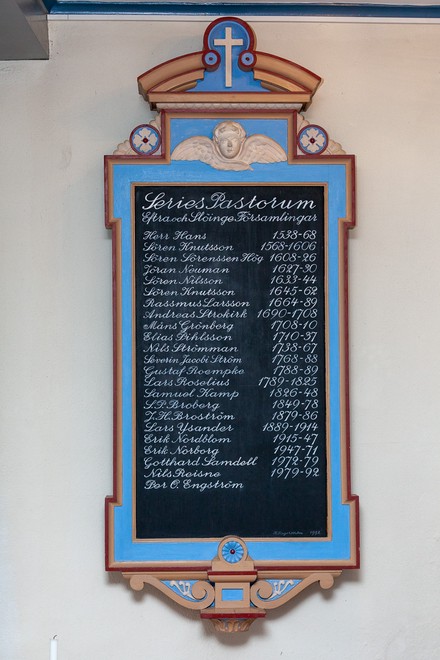 Series Pastorum
Eftra och Slöinge Församlingar
Herr Hans 1538-68
Sören Knutsson 1568-1606
Sören Sörenssen Hög 1608-26
Jöran Neuman 1627-30
Sören Nilsson 1633-44
Sören Knutsson 1645-62
Rassmus Larsson 1664-89
Andreas Strokirk 1690-1708
Måns Grönberg 1708-10
Elias Pihlsson 1710-37
Nils Strömman 1738-67
Severin Jacobi Ström 1768-88
Gustaf Roempke 1788-89
Lars Roselius 1789-1825
Samuel Kamp 1826-48
S.P. Broberg 1849-78
J.H. Broström 1879-86
Lars Ysander 1889-1914
Erik Nordblom 1915-47
Erik Norborg 1947-71
Gotthard Samdell 1972-79
Nils Reisne 1979-92
Per O. Engström